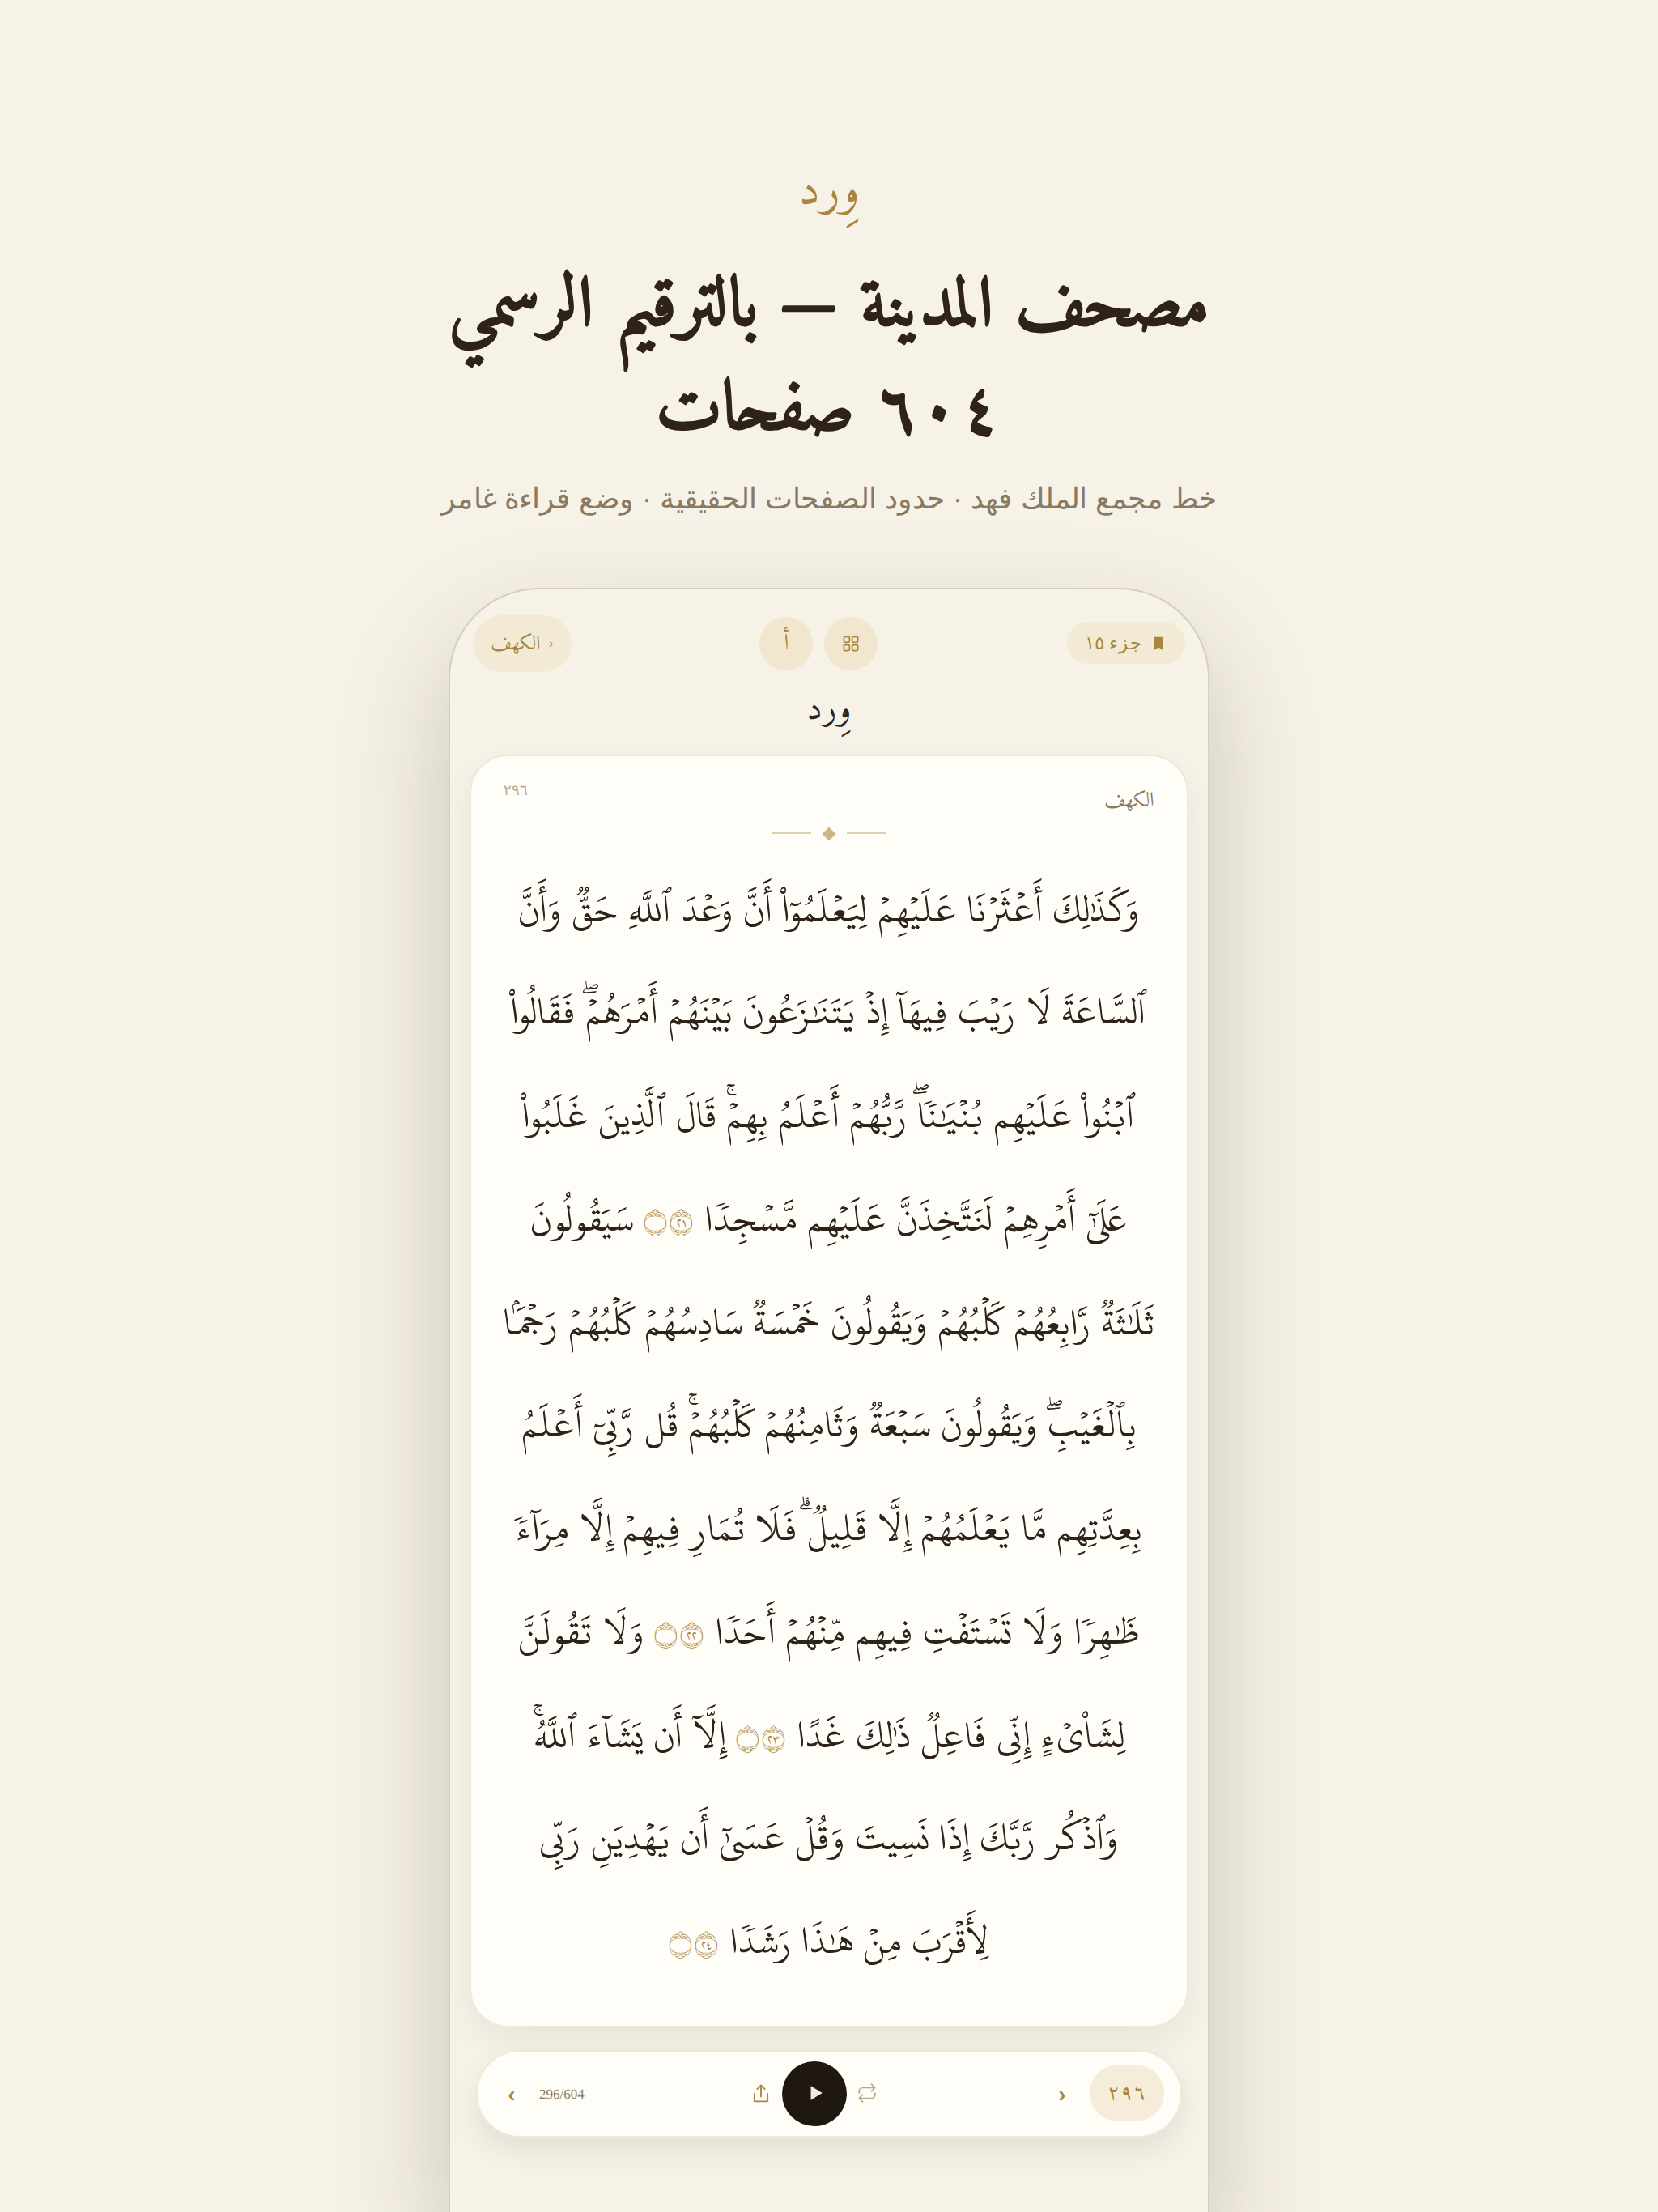 وِرد
مصحف المدينة — بالترقيم الرسمي
٦٠٤ صفحات
خط مجمع الملك فهد · حدود الصفحات الحقيقية · وضع قراءة غامر
جزء ١٥
أ
‹ الكهف
وِرد
الكهف
٢٩٦
وَكَذَٰلِكَ أَعۡثَرۡنَا عَلَيۡهِمۡ لِيَعۡلَمُوٓاْ أَنَّ وَعۡدَ ٱللَّهِ حَقّٞ وَأَنَّ
ٱلسَّاعَةَ لَا رَيۡبَ فِيهَآ إِذۡ يَتَنَٰزَعُونَ بَيۡنَهُمۡ أَمۡرَهُمۡۖ فَقَالُواْ
ٱبۡنُواْ عَلَيۡهِم بُنۡيَٰنٗاۖ رَّبُّهُمۡ أَعۡلَمُ بِهِمۡۚ قَالَ ٱلَّذِينَ غَلَبُواْ
عَلَىٰٓ أَمۡرِهِمۡ لَنَتَّخِذَنَّ عَلَيۡهِم مَّسۡجِدٗا ٢١ سَيَقُولُونَ
ثَلَٰثَةٞ رَّابِعُهُمۡ كَلۡبُهُمۡ وَيَقُولُونَ خَمۡسَةٞ سَادِسُهُمۡ كَلۡبُهُمۡ رَجۡمَۢا
بِٱلۡغَيۡبِۖ وَيَقُولُونَ سَبۡعَةٞ وَثَامِنُهُمۡ كَلۡبُهُمۡۚ قُل رَّبِّيٓ أَعۡلَمُ
بِعِدَّتِهِم مَّا يَعۡلَمُهُمۡ إِلَّا قَلِيلٞۗ فَلَا تُمَارِ فِيهِمۡ إِلَّا مِرَآءٗ
ظَٰهِرٗا وَلَا تَسۡتَفۡتِ فِيهِم مِّنۡهُمۡ أَحَدٗا ٢٢ وَلَا تَقُولَنَّ
لِشَاْيۡءٍ إِنِّي فَاعِلٞ ذَٰلِكَ غَدًا ٢٣ إِلَّآ أَن يَشَآءَ ٱللَّهُۚ
وَٱذۡكُر رَّبَّكَ إِذَا نَسِيتَ وَقُلۡ عَسَىٰٓ أَن يَهۡدِيَنِ رَبِّي
لِأَقۡرَبَ مِنۡ هَٰذَا رَشَدٗا ٢٤
٢٩٦
296/604